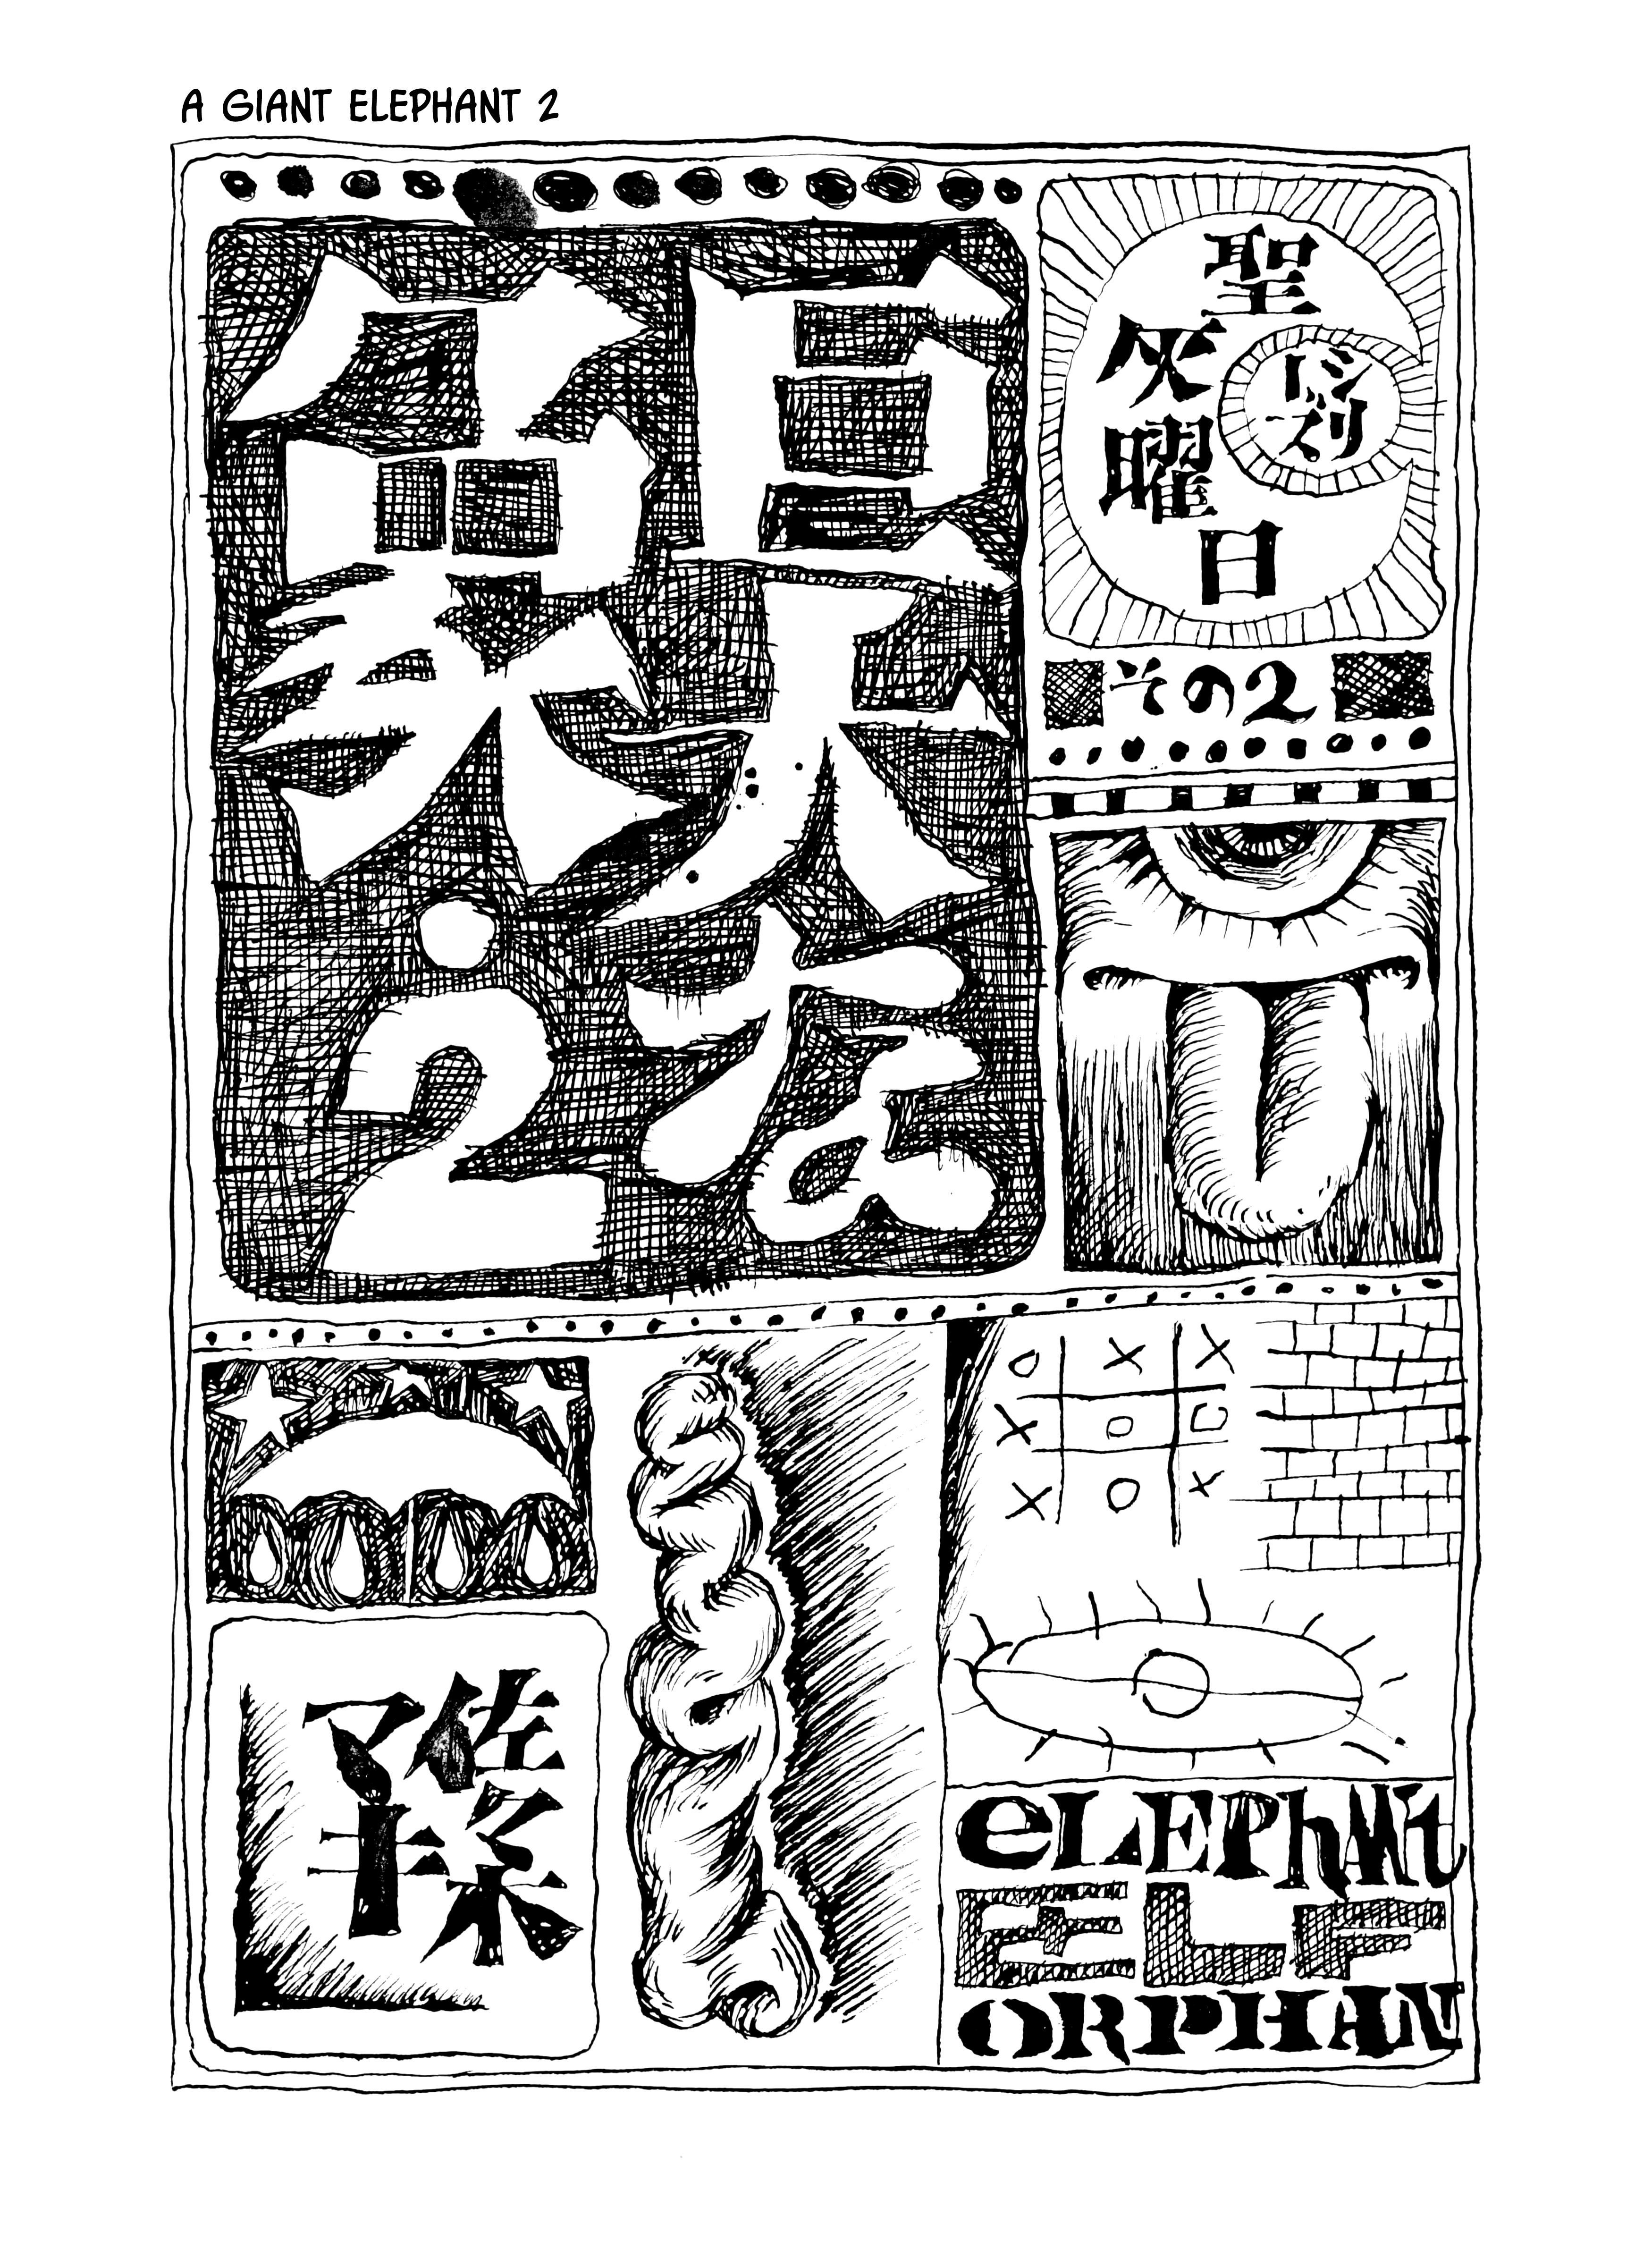 A GIANT ELEPHANT 2
巨大な
象・2
聖灰曜日
シリーズ
その2
佐々木
マキ
O X X
X O O
X O X
eLEPhANt
ELF
ORPHAN